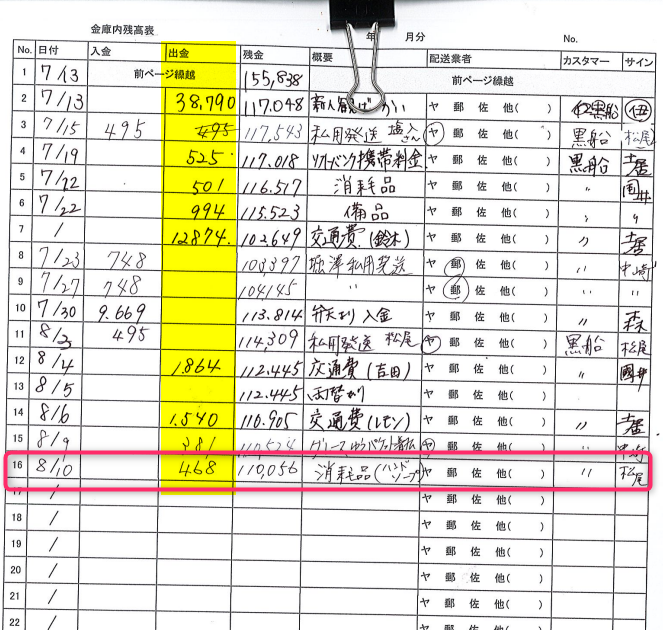 金庫内残高表 年 月分 No.
No. 日付 入金 出金 残金 概要 配送業者 カスタマー サイン
1 7/13 前ページ繰越 155,838 前ページ繰越
2 7/13 38,790 117.048 ヤ 郵 佐 他( ) 黒船
3 7/15 495 495 117,543 私用発送 塩入さん ヤ 郵 佐 他( ) 黒船 松尾
4 7/19 525 117.018 携帯料金 ヤ 郵 佐 他( ) 黒船 土居
5 7/22 501 116.517 消耗品 ヤ 郵 佐 他( ) 〃
6 7/22 994 115.523 備品 ヤ 郵 佐 他( ) 〃 〃
7 / 12874. 102.649 交通費(鈴木) ヤ 郵 佐 他( ) 〃 土居
8 7/23 748 103,397 堀澤私用発送 ヤ 郵 佐 他( ) 〃 中崎
9 7/27 748 104,145 〃 ヤ 郵 佐 他( ) 〃 〃
10 7/30 9.669 113.814 弁天より入金 ヤ 郵 佐 他( ) 〃 森
11 8/3 495 114,309 私用発送 松尾 ヤ 郵 佐 他( ) 黒船 松尾
12 8/4 1.864 112.445 交通費(吉田) ヤ 郵 佐 他( ) 〃 國井
13 8/5 112.445 両替 ヤ 郵 佐 他( )
14 8/6 1.540 110.905 交通費(レモン) ヤ 郵 佐 他( ) 〃 土居
15 8/9 381 110,524 ヤ 郵 佐 他( ) 〃
16 8/10 468 110,056 消耗品(ハンドソープ) ヤ 郵 佐 他( ) 〃 松尾
17 / ヤ 郵 佐 他( )
18 / ヤ 郵 佐 他( )
19 / ヤ 郵 佐 他( )
20 / ヤ 郵 佐 他( )
21 / ヤ 郵 佐 他( )
22 / ヤ 郵 佐 他( )